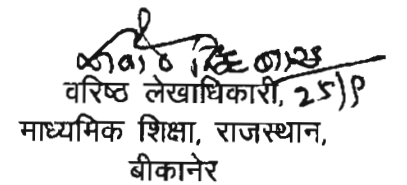 वरिष्ठ लेखाधिकारी, 25/9
माध्यमिक शिक्षा, राजस्थान,
बीकानेर